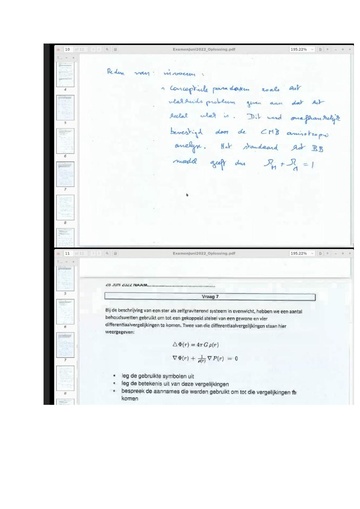 10
Examenjuni2022_Oplossing.pdf
195,22%
Reden van invoeren:
conceptuele paradoxen zoals het
vlakheidsprobleem geven aan dat het
heelal vlak is. Dit werd onafhankelijk
bevestigd door de CMB anisotropie
analyse. Het standaard Hot BB
model geeft dus Ω_M + Ω_Λ = 1
11
Examenjuni2022_Oplossing.pdf
195,22%
Vraag 7
Bij de beschrijving van een ster als zelfgraviterend systeem in evenwicht, hebben we een aantal
behoudswetten gebruikt om tot een gekoppeld stelsel van een gewone en vier
differentiaalvergelijkingen te komen. Twee van die differentiaalvergelijkingen staan hier
weergegeven:
△Φ(r) = 4π G ρ(r)
∇Φ(r) + 1/ρ(r) ∇P(r) = 0
• leg de gebruikte symbolen uit
• leg de betekenis uit van deze vergelijkingen
• bespreek de aannames die werden gebruikt om tot die vergelijkingen te
komen